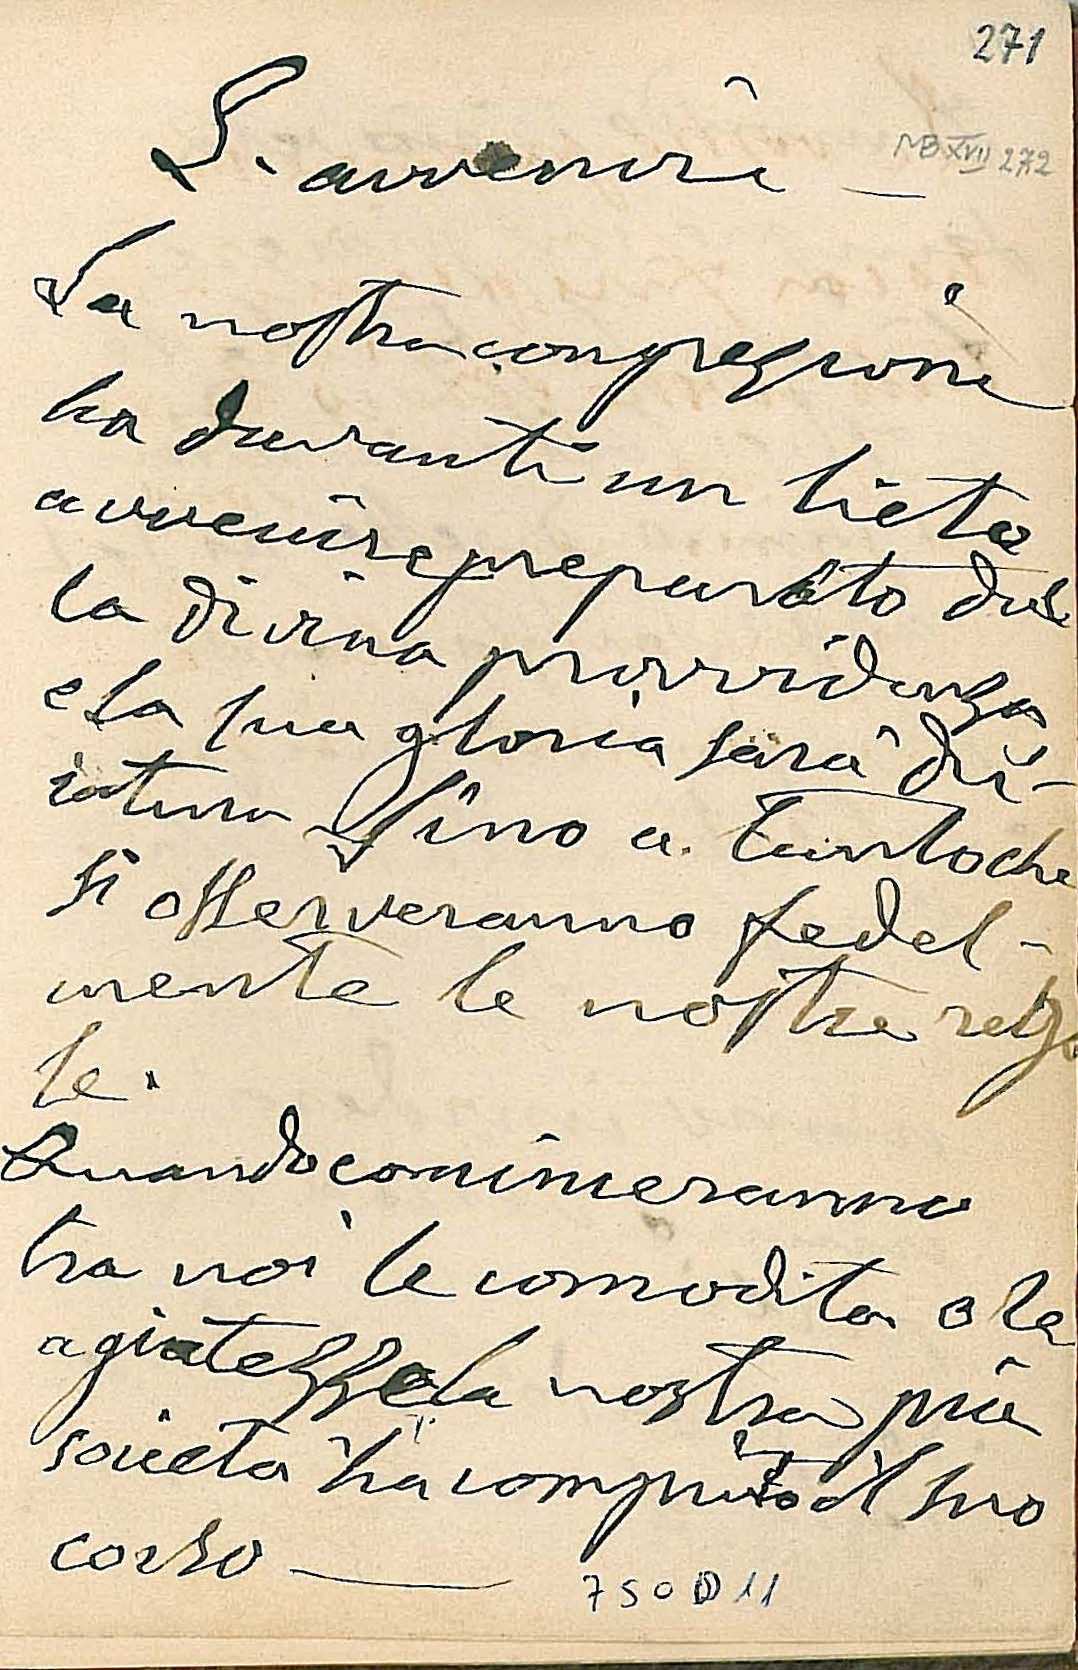 271
MB XVII 272
L'avvenire —
La nostra congregzione
ha davanti un lieto
avvenire preparato dal
la divina provvidenza
e la sua gloria sarà du-
ratura fino a tanto che
si osserveranno fedel-
mente le nostre rego
le.
Quando cominceranno
tra noi le comodita o le
agiatezze la nostra pia
societa ha compiuto il suo
corso —
750D11